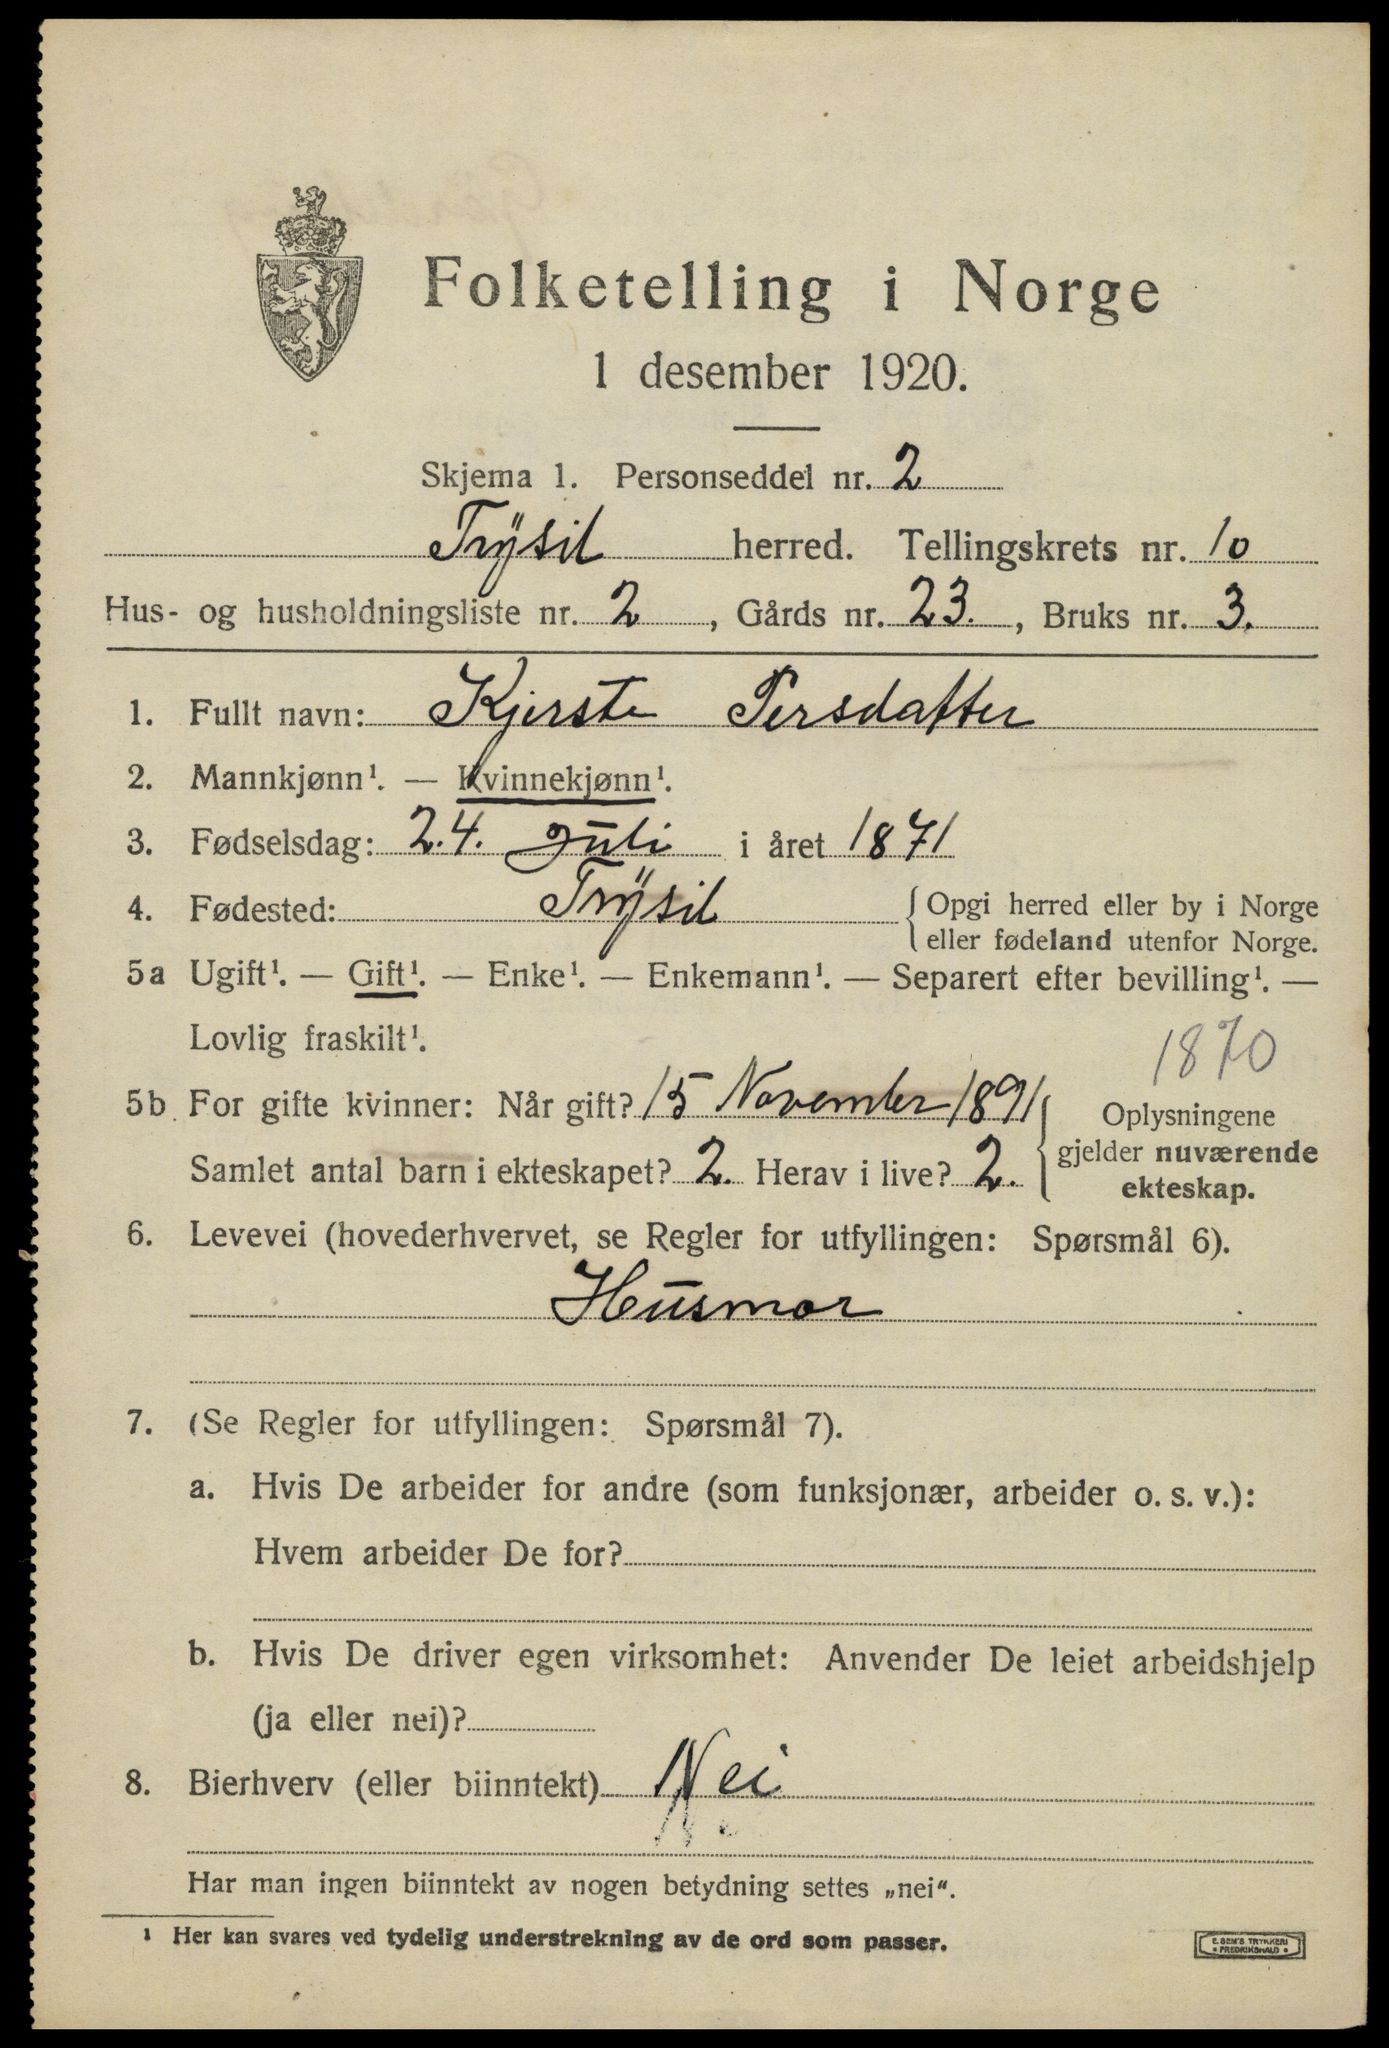 Folketelling i Norge
1 desember 1920.
Skjema 1. Personseddel nr. 2
Trysil herred. Tellingskrets nr. 10
Hus- og husholdningsliste nr. 2, Gårds nr. 23., Bruks nr. 3.
1. Fullt navn: Kjerste Persdatter
2. Mannkjønn¹. — Kvinnekjønn¹.
3. Fødselsdag: 24. Juli i året 1871
4. Fødested: Trysil { Opgi herred eller by i Norge
eller fødeland utenfor Norge.
5a Ugift¹. — Gift¹. — Enke¹. — Enkemann¹. — Separert efter bevilling¹. —
Lovlig fraskilt¹.
1870
5b For gifte kvinner: Når gift? 15 November 1891
Samlet antal barn i ekteskapet? 2. Herav i live? 2.
Oplysningene
gjelder nuværende
ekteskap.
6. Levevei (hovederhvervet, se Regler for utfyllingen: Spørsmål 6).
Husmor
7. (Se Regler for utfyllingen: Spørsmål 7).
a. Hvis De arbeider for andre (som funksjonær, arbeider o. s. v.):
Hvem arbeider De for?
b. Hvis De driver egen virksomhet: Anvender De leiet arbeidshjelp
(ja eller nei)?
8. Bierhverv (eller biinntekt) Nei
Har man ingen biinntekt av nogen betydning settes „nei".
¹ Her kan svares ved tydelig understrekning av de ord som passer.
E. SEM'S TRYKKERI
• FREDRIKSHALD •